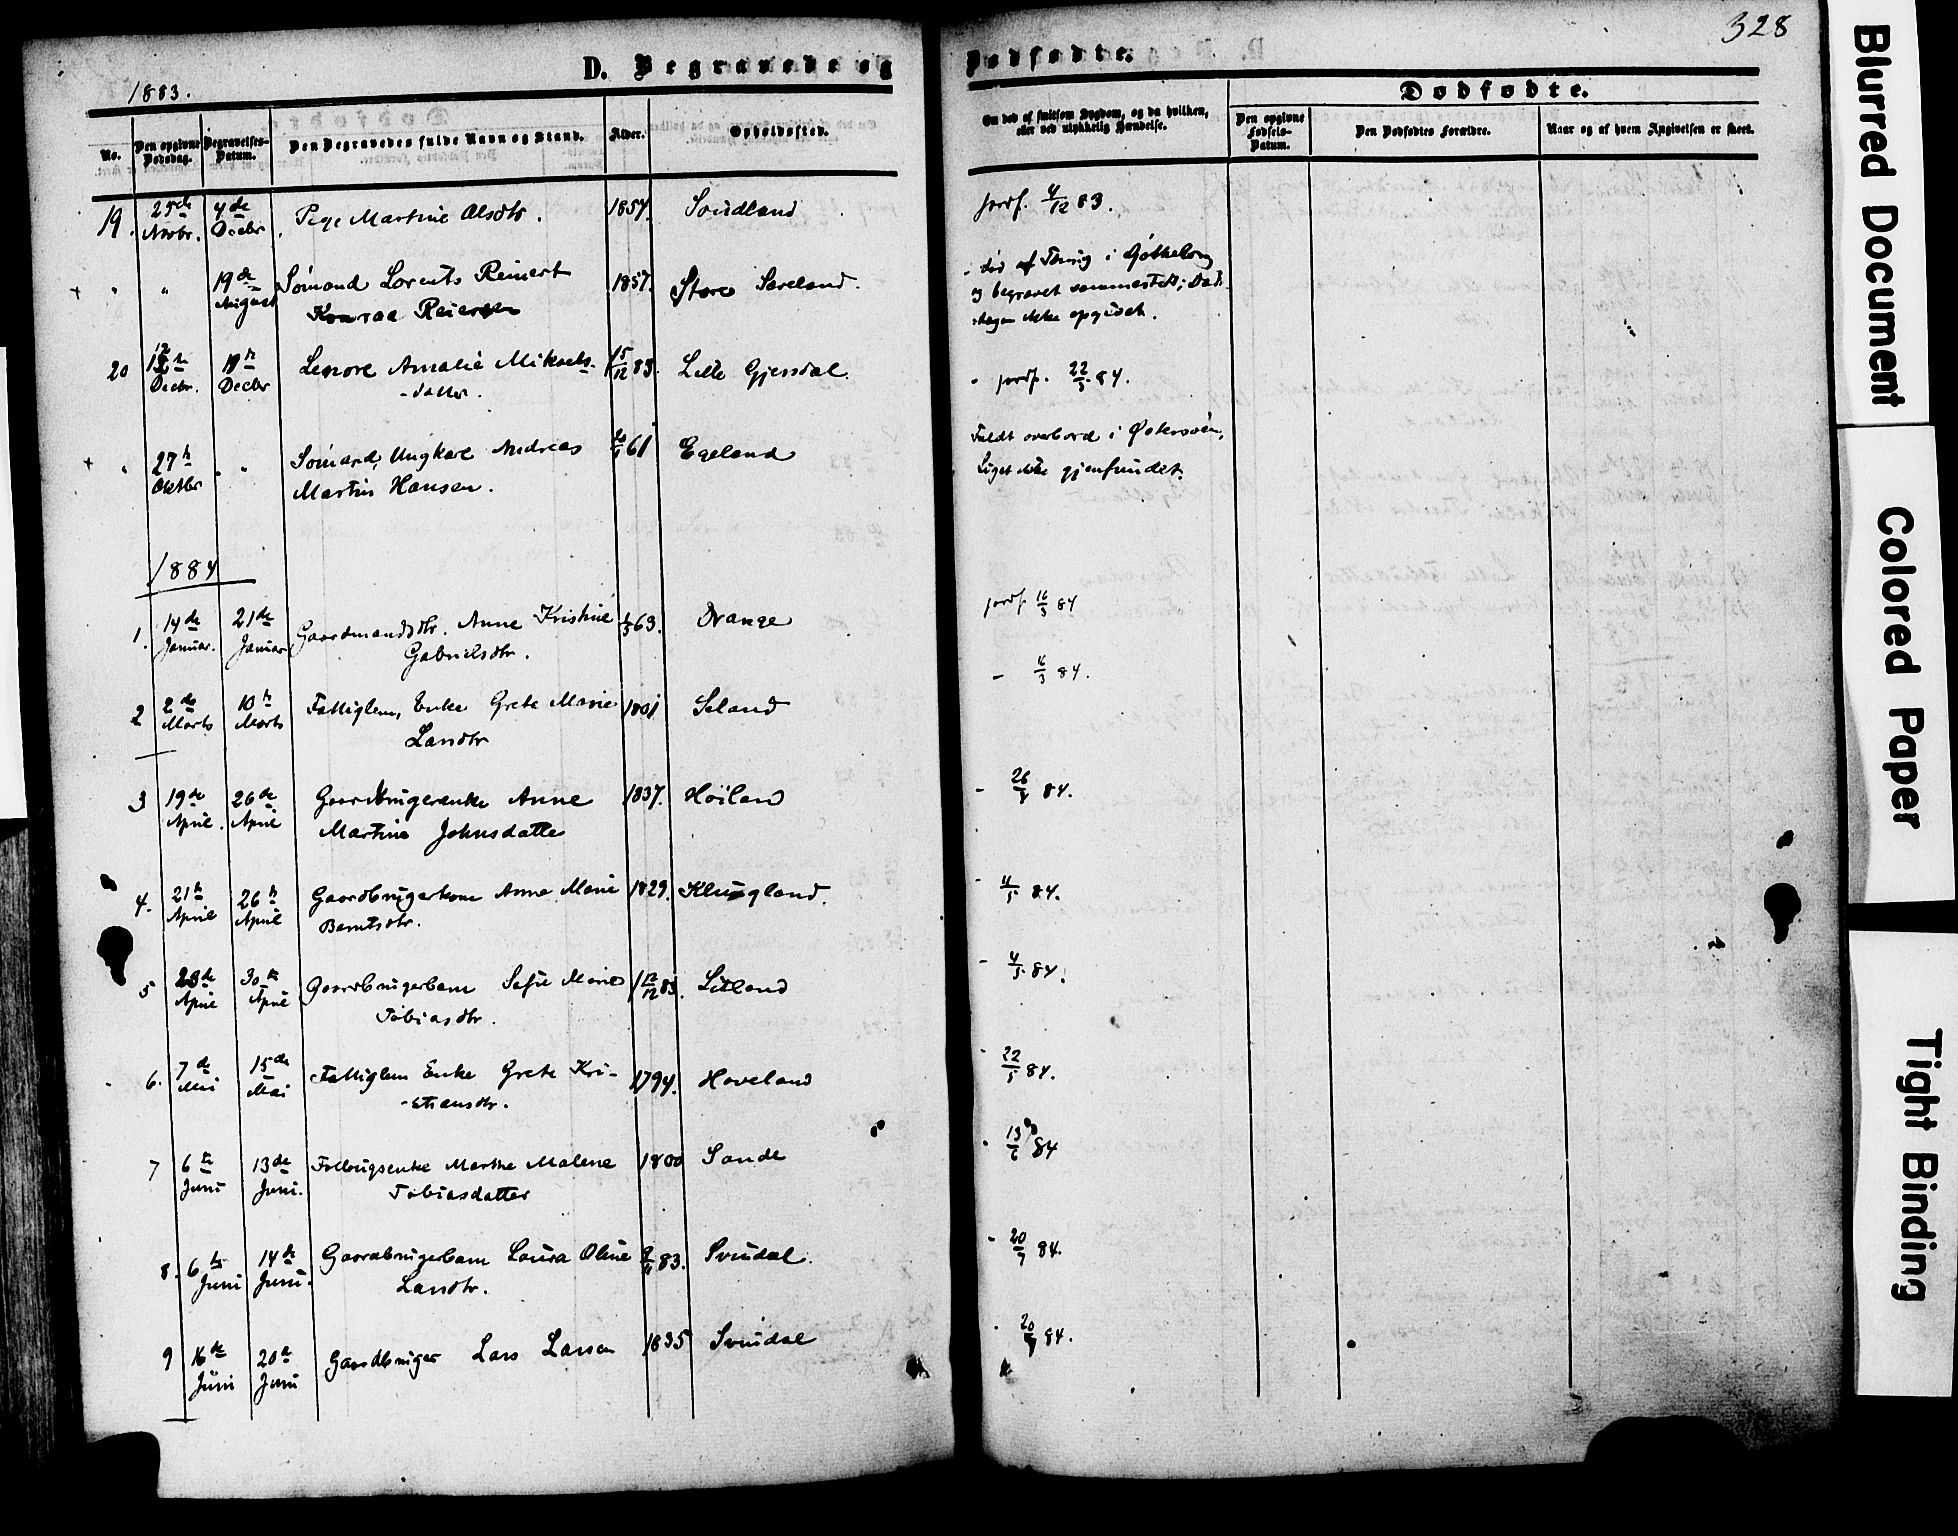 328
D. Begravede og Dødfødte.
1883.
No.
Den opgivne Dødsdag.
Begravelses-Datum.
Den Begravedes fulde Navn og Stand.
Alder.
Opholdssted.
Om død af smitsom Sygdom, og da hvilken, eller ved ulykkelig Hændelse.
Dødfødte.
Den opgivne Fødsels-Datum.
Den Dødfødtes Forældre.
Naar og af hvem Angivelsen er skeet.
19. 25de Novbr. 4de Decbr. Pige Martine Olsdtr. 1857. Svindland jordf. 4/12 83.
" " 19de August Sømand Lorents Reinert 1857. Store Sæveland. - død af Tæring i Gøtheborg
Konrad Reiersen og begravet sammesteds; Døds-
dagen ikke opgivet.
20 12te Decbr. 19de Decbr Lenore Amalie Mikaels- 83. Lille Gjersdal. - jordf. 22/3 84.
-datter.
" 27de Oktbr " " Sømand, Ungkarl Andreas 61 Egeland Faldt overbord i Østersøen,
Martin Hansen. Liget ikke gjenfundet.
1884
1. 14de Januar. 21de Januar Gaardmandsdtr. Anne Kristine 63. Drange jordf 16/3 84
Gabrielsdtr.
2 2de Marts 10de Marts Fattiglem, Enke Grete Marie 1801 Seland - 16/3 84.
Larsdtr
3 19de April. 26de April Gaardbrugerenke Anne 1837. Høiland - 26/4 84.
Martine Johnsdatter
4. 21de April 26de April Gaardbrugerkone Anna Marie 1829. Klungland. - 4/5 84.
Berntsdtr.
5 23de April 30te April Gaardbrugerbarn Sofie Marie 12/12 83. Litland - 4/5 84.
Tobiasdtr.
6. 7de Mai 15de Mai Fattiglem Enke Grete Kri- 1794. Haveland - 22/5 84.
-stiansdtr.
7 6te Juni 13de Juni. Folbrugsenke Marthe Malene 1800 Sande - 13/6 84
Tobiasdatter
8. 6te Juni 14de Juni. Gaardbrugerbarn Laura Oline 83. Svindal. - 20/7 84.
Larsdtr.
9 16de Juni 20de Juni Gaardbruger Lars Larsen 1835 Svindal - 20/7 84.
Blurred Document
Colored Paper
Tight Binding